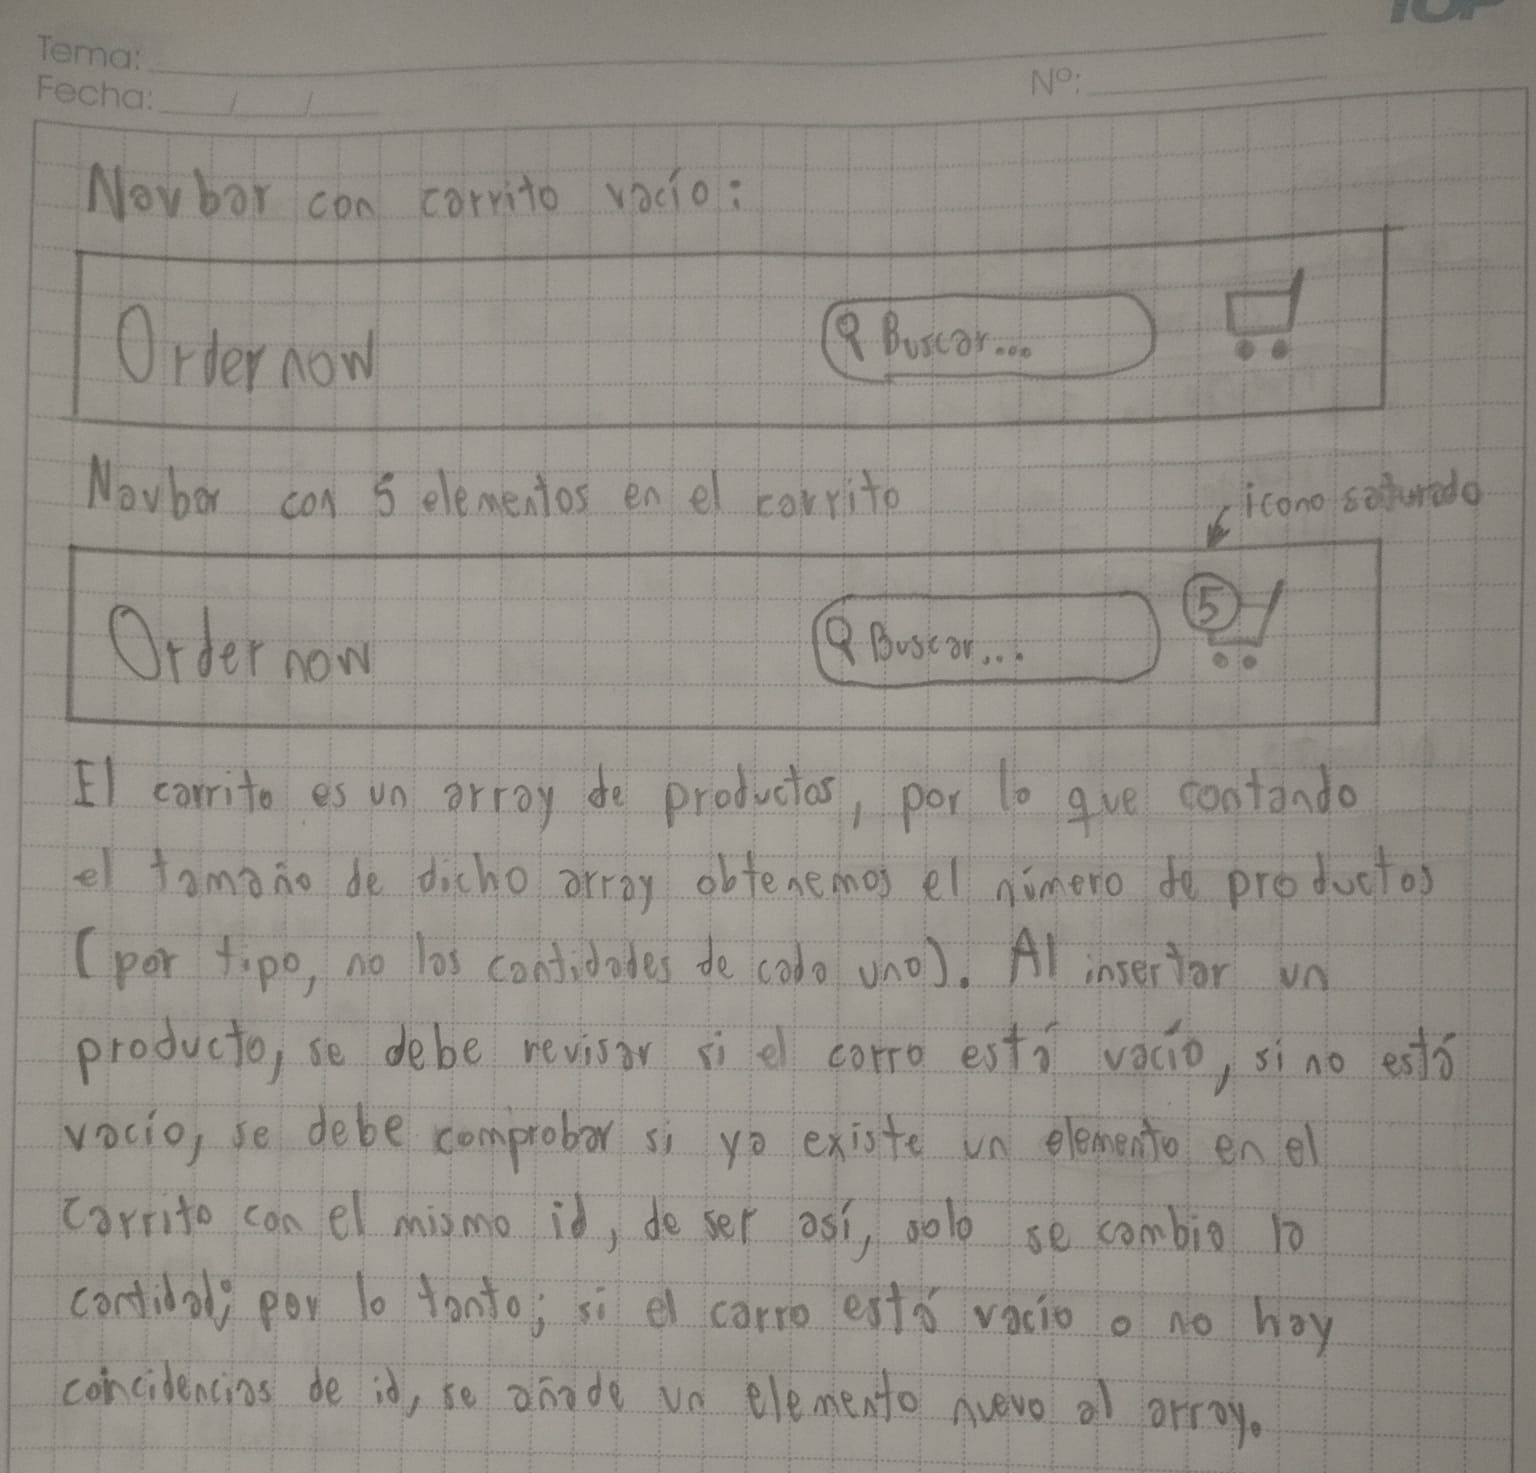 Tema:
Fecha: / /
Nº:
Navbar con carrito vacío:
Order now
Buscar...
Navbar con 5 elementos en el carrito
icono saturado
Order now
Buscar...
5
El carrito es un array de productos, por lo que contando
el tamaño de dicho array obtenemos el número de productos
(por tipo, no las cantidades de cada uno). Al insertar un
producto, se debe revisar si el carro está vacío, si no está
vacío, se debe comprobar si ya existe un elemento en el
carrito con el mismo id, de ser así, solo se cambia la
cantidad; por lo tanto; si el carro está vacío o no hay
coincidencias de id, se añade un elemento nuevo al array.